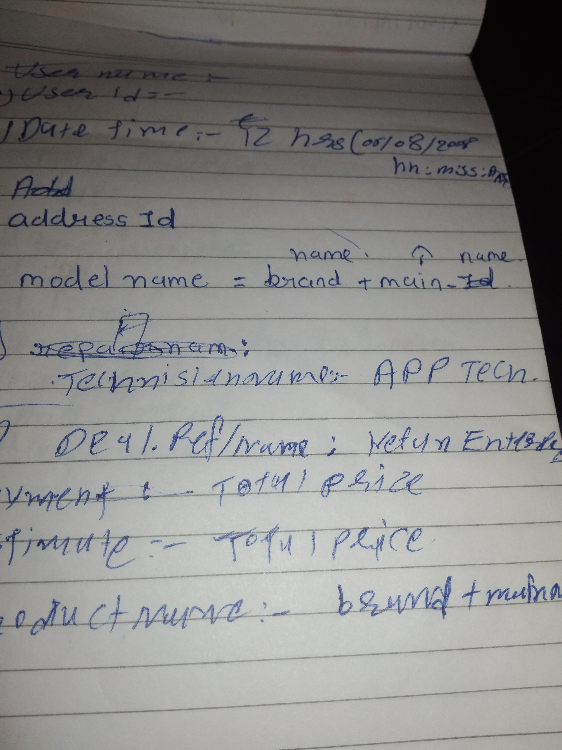 User name :-
) User id :-
) Date time :- 12 hrs (05/08/2008
hh : miss : AM
Add
address Id
name. name.
model name = brand + main-Id.
:
APP Tech.
Deal. Ref/name :
yment : - Total price
timate :- Total price
oduct name :- brand + main